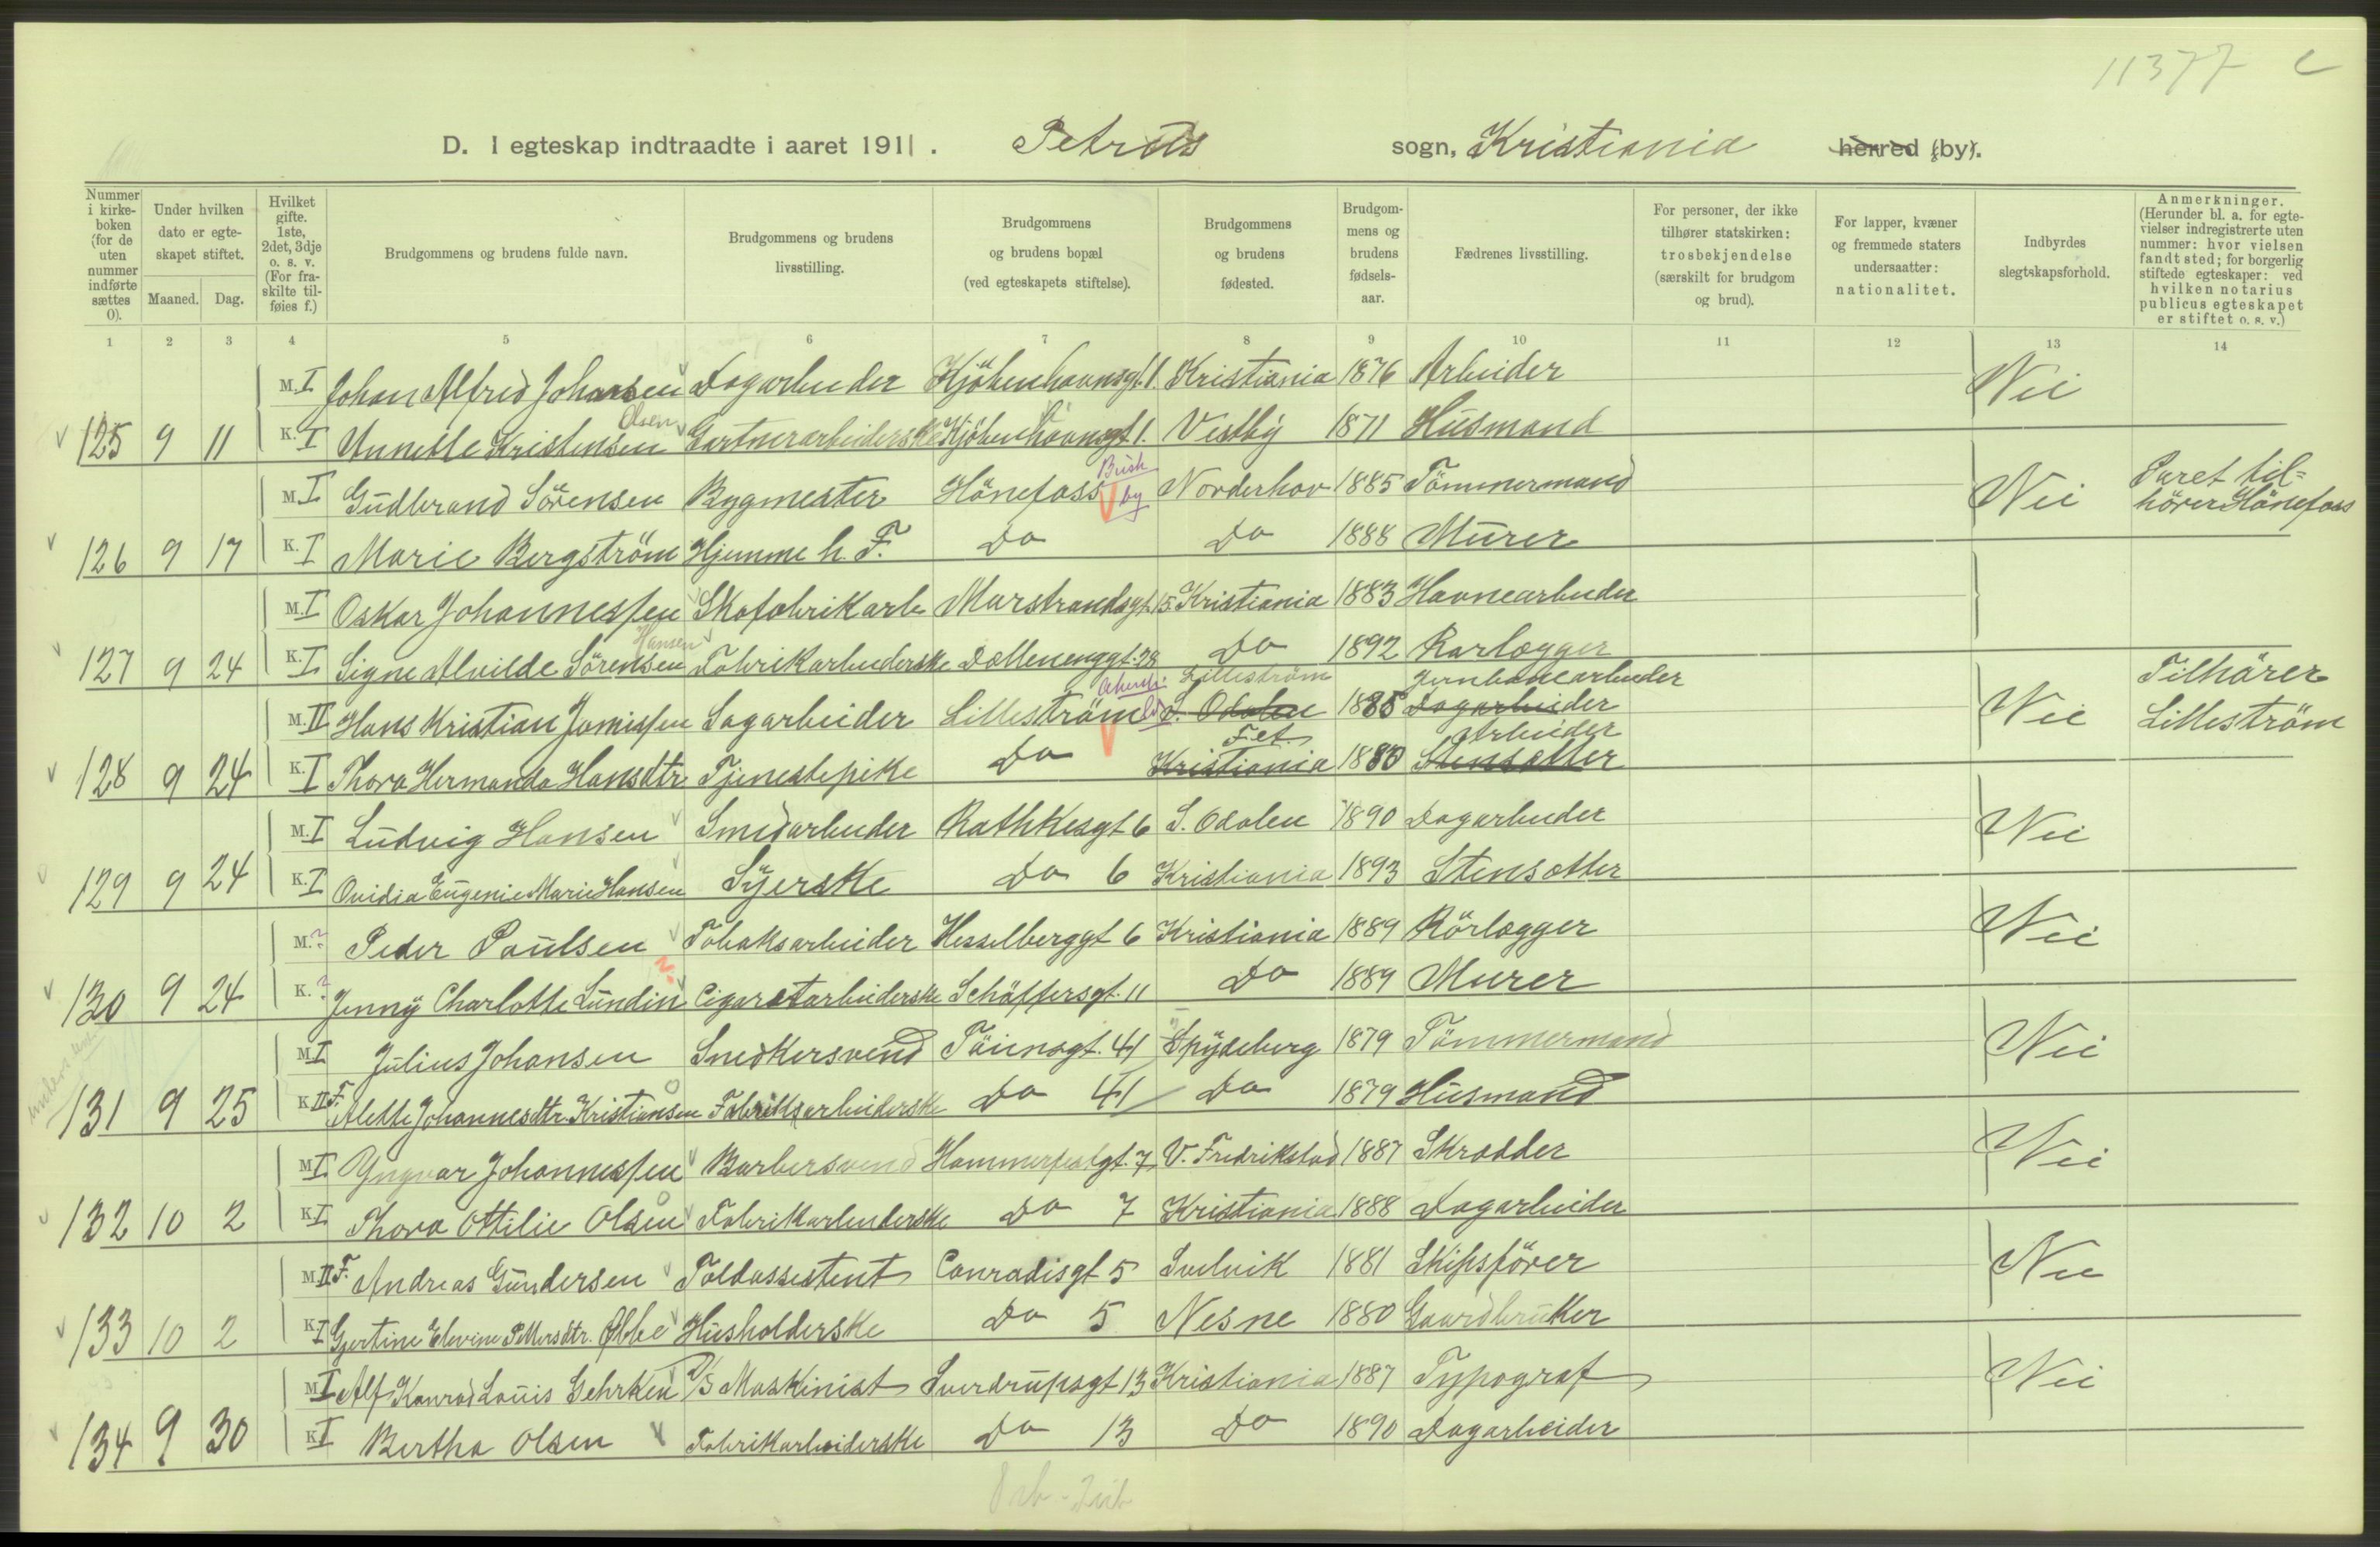 11377 c
D. I egteskap indtraadte i aaret 1911. Petrus sogn, Kristiania herred (by).
Nummer i kirkeboken (for de uten nummer indførte sættes 0).
Under hvilken dato er egteskapet stiftet.
Maaned. Dag.
Hvilket gifte. 1ste, 2det, 3dje o. s. v. (For fraskilte tilføies f.)
Brudgommens og brudens fulde navn.
Brudgommens og brudens livsstilling.
Brudgommens og brudens bopæl (ved egteskapets stiftelse).
Brudgommens og brudens fødested.
Brudgommens og brudens fødselsaar.
Fædrenes livsstilling.
For personer, der ikke tilhører statskirken: trosbekjendelse (særskilt for brudgom og brud).
For lapper, kvæner og fremmede staters undersaatter: nationalitet.
Indbyrdes slegtskapsforhold.
Anmerkninger. (Herunder bl. a. for egtevielser indregistrerte uten nummer: hvor vielsen fandt sted; for borgerlig stiftede egteskaper: ved hvilken notarius publicus egteskapet er stiftet o. s. v.)
1 2 3 4 5 6 7 8 9 10 11 12 13 14
M. I Johan Alfred Johansen Dagarbeider Kjöbenhavnsgt. 1. Kristiania 1876 Arbeider Nei
Olsen
125 9 11 K. I Annette Kristensen Gartnerarbeiderske Kjöbenhavnsgt 1. Vestby 1871 Husmand
M. I Gudbrand Sörensen Bygmester Hönefoss by Norderhov 1885 Tömmermand Nei Paret tilhörer Hönefoss
126 9 17 K. I Marie Bergström Hjemme h. F. Do Do 1888 Murer
M. I Oskar Johannessen Skofabrikarb Marstrandsgt. 15 Kristiania 1883 Havnearbeider
Hansen
127 9 24 K. I Signe Alvilde Sörensen Fabrikarbeiderske Dælenenggt. 28 Do 1892 Rørlægger
Lilleström Jernbanearbeider
M. II Hans Kristian Jamissen Sagarbeider Lilleström S. Odalen 1885 Dagarbeider Nei Tilhörer Lilleström
Fet Arbeider
128 9 24 K. I Thora Hermanda Hansdtr. Tjenestepike Do Kristiania 1880 Stensætter
M. I Ludvig Hansen Smedarbeider Rathkesgt 6 S. Odalen 1890 Dagarbeider Nei
129 9 24 K. I Ovidia Eugenie Marie Hansen Syerske Do 6 Kristiania 1893 Stensætter
M. ? Peder Paulsen Tobaksarbeider Hesselberggt 6 Kristiania 1889 Rörlægger Nei
130 9 24 K. ? Jenny Charlotte Lundin Cigaretarbeiderske Schäffersgt. 11 Do 1889 Murer
M. I Julius Johansen Snedkersvend Töiensgt. 41 Spydeberg 1879 Tömmermand Nei
131 9 25 K. II F. Alette Johannesdtr. Kristiansen Fabrikarbeiderske Do 41 Do 1879 Husmand
M. I Yngvar Johannessen Barbersvend Hammerfestgt. 7 V. Fredrikstad 1887 Skrædder Nei
132 10 2 K. I Thora Ottilie Olsen Fabrikarbeiderske Do 7 Kristiania 1888 Dagarbeider
M. II F. Andreas Gundersen Toldassistent Conradisgt 5 Svelvik 1881 Skipsförer Nei
133 10 2 K. I Gjertine Elevine Pettersdtr. Ebbe Husholderske Do 5 Nesne 1880 Gaardbruker
M. I Alf Konrad Louis Gehrken D/S Maskinist Sverdrupsgt 13 Kristiania 1887 Typograf Nei
134 9 30 K. I Bertha Olsen Fabrikarbeiderske Do 13 Do 1890 Dagarbeider